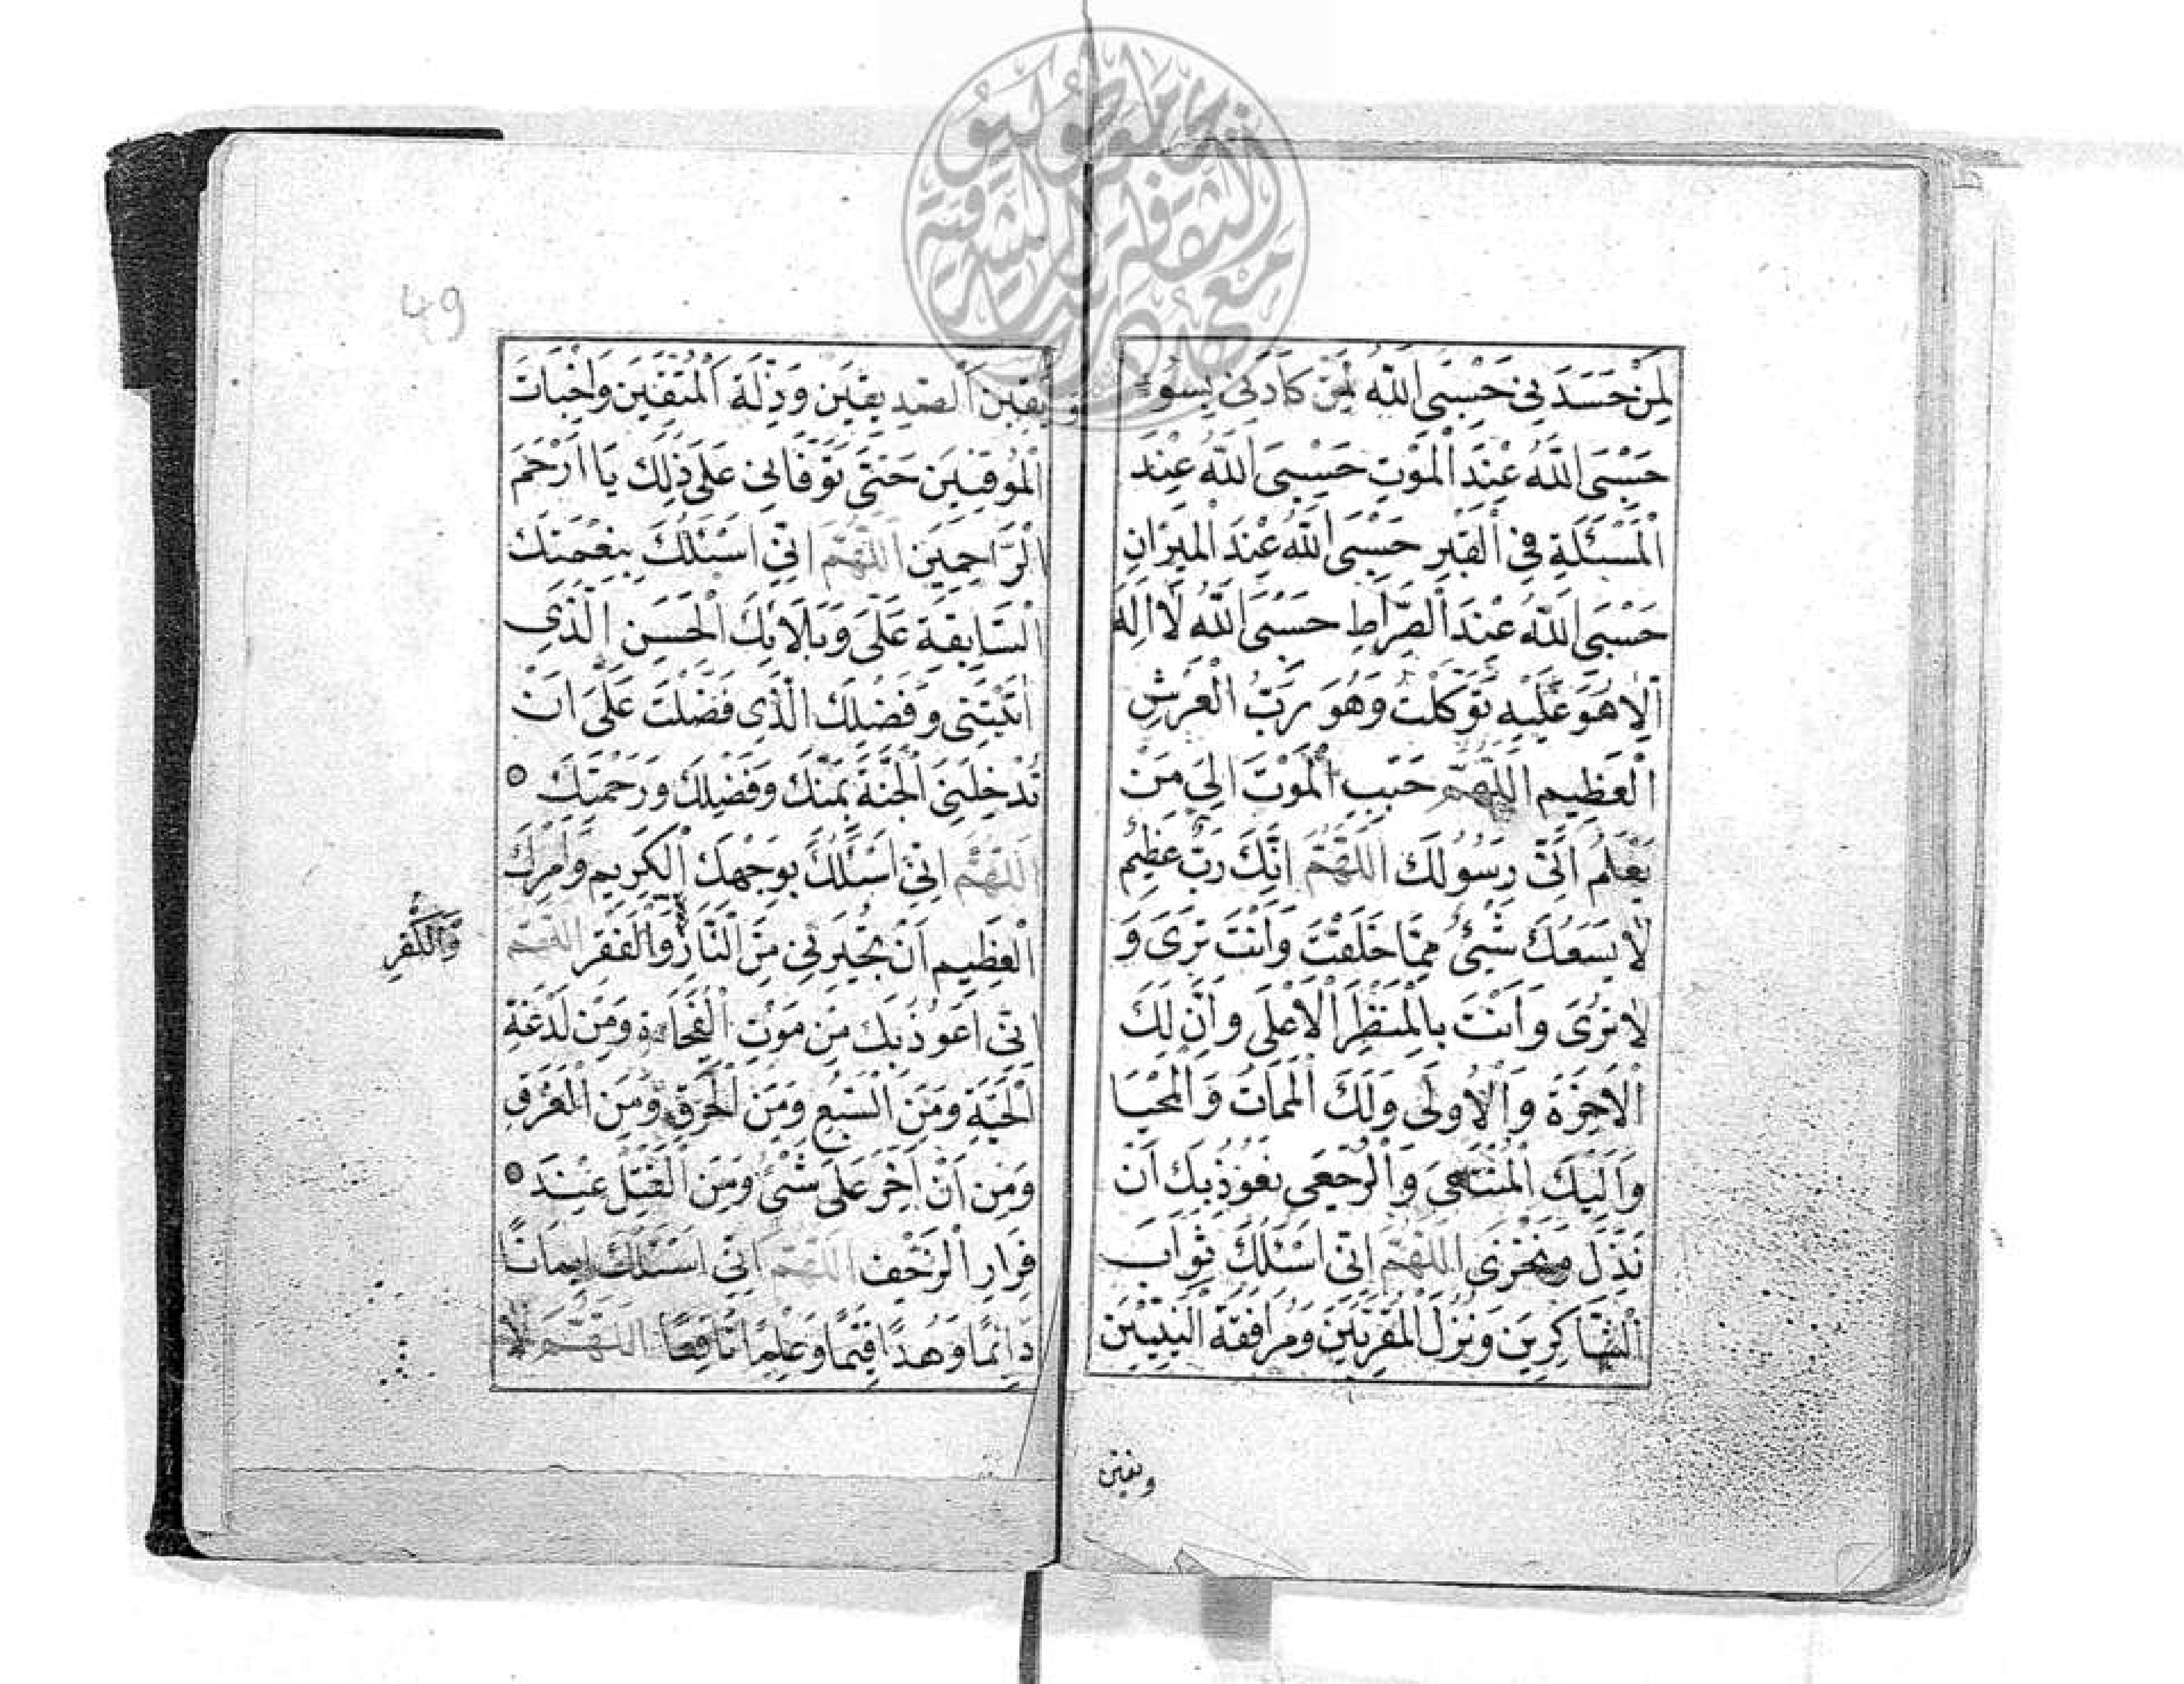 لِمَنْ حَسَدَنِى حَسْبِىَ اللّٰهُ لِمَنْ كَادَنِى بِسُوءٍ
حَسْبِىَ اللّٰهُ عِنْدَ الْمَوْتِ حَسْبِىَ اللّٰهُ عِنْدَ
الْمَسْئَلَةِ فِى الْقَبْرِ حَسْبِىَ اللّٰهُ عِنْدَ الْمِيزَانِ
حَسْبِىَ اللّٰهُ عِنْدَ الصِّرَاطِ حَسْبِىَ اللّٰهُ لَا اِلٰهَ
اِلَّا هُوَ عَلَيْهِ تَوَكَّلْتُ وَهُوَ رَبُّ الْعَرْشِ
الْعَظِيمِ اَللّٰهُمَّ حَبِّبِ الْمَوْتَ اِلٰى مَنْ
يَعْلَمُ اَنِّى رَسُولُكَ اَللّٰهُمَّ اِنَّكَ رَبٌّ عَظِيمٌ
لَا يَسَعُكَ شَيْئٌ مِمَّا خَلَقْتَ وَاَنْتَ تَرَى وَ
لَا تُرَى وَاَنْتَ بِالْمَنْظَرِ الْاَعْلَى وَاَنَّ لَكَ
الْاٰخِرَةَ وَالْاُولَى وَلَكَ الْمَمَاتُ وَالْمَحْيَا
وَاِلَيْكَ الْمُنْتَهَى وَالرُّجْعَى نَعُوذُ بِكَ اَنْ
نَذِلَّ وَنَخْزَى اَللّٰهُمَّ اِنِّى اَسْئَلُكَ ثَوَابَ
الشَّاكِرِينَ وَنُزُلَ الْمُقَرَّبِينَ وَمُرَافَقَةَ النَّبِيِّينَ
ويقين
49
وَيَقِينَ الصِّدِّيقِينَ وَذِلَّةَ الْمُتَّقِينَ وَاِخْبَاتَ
الْمُوقِنِينَ حَتَّى تَوَفَّانِى عَلَى ذٰلِكَ يَا اَرْحَمَ
الرَّاحِمِينَ اَللّٰهُمَّ اِنِّى اَسْئَلُكَ بِنِعْمَتِكَ
السَّابِقَةِ عَلَىَّ وَبَلَائِكَ الْحَسَنِ الَّذِى
ابْتَلَيْتَنِى وَفَضْلِكَ الَّذِى فَضَّلْتَ عَلَىَّ اَنْ
تُدْخِلَنِى الْجَنَّةَ بِمَنِّكَ وَفَضْلِكَ وَرَحْمَتِكَ
اَللّٰهُمَّ اِنِّى اَسْئَلُكَ بِوَجْهِكَ الْكَرِيمِ وَاَمْرِكَ
الْعَظِيمِ اَنْ تُجِيرَنِى مِنَ النَّارِ وَالْفَقْرِ اَللّٰهُمَّ
وَالْكُفْرِ
اِنِّى اَعُوذُ بِكَ مِنْ مَوْتِ الْفُجَاءَةِ وَمِنْ لَدْغَةِ
الْحَيَّةِ وَمِنَ السَّبُعِ وَمِنَ الْحَرَقِ وَمِنَ الْغَرَقِ
وَمِنْ اَنْ اَخِرَّ عَلَى شَيْئٍ وَمِنَ الْقَتْلِ عِنْدَ
فِرَارِ الزَّحْفِ اَللّٰهُمَّ اِنِّى اَسْئَلُكَ اِيمَانًا
دَائِمًا وَهُدًا قَيِّمًا وَعِلْمًا نَافِعًا اَللّٰهُمَّ لَا